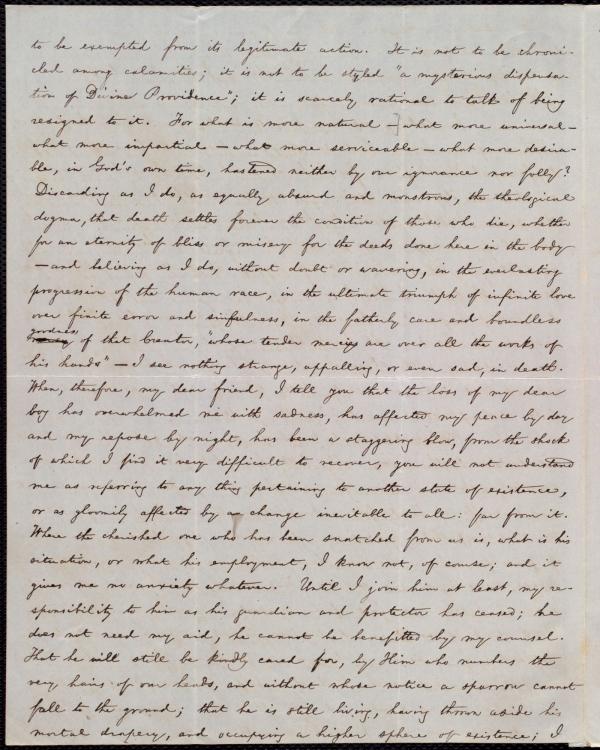 to be exempted from its legitimate action. It is not to be chroni-
cled among calamities; it is not to be styled "a mysterious dispensa-
tion of Divine Providence"; it is scarcely rational to talk of being
resigned to it. For what is more natural — what more universal —
what more impartial — what more serviceable — what more desira-
ble, in God's own time, hastened neither by our ignorance nor folly?
Discarding as I do, as equally absurd and monstrous, the theological
dogma, that death settles forever the condition of those who die, whether
for an eternity of bliss or misery for the deeds done here in the body
— and believing as I do, without doubt or wavering, in the everlasting
progression of the human race, in the ultimate triumph of infinite love
over finite error and sinfulness, in the fatherly care and boundless
goodness of that Creator, "whose tender mercies are over all the works of
his hands" — I see nothing strange, appalling, or even sad, in death.
When, therefore, my dear friend, I tell you that the loss of my dear
boy has overwhelmed me with sadness, has affected my peace by day
and my repose by night, has been a staggering blow, from the shock
of which I find it very difficult to recover, you will not understand
me as referring to any thing pertaining to another state of existence,
or as gloomily affected by a change inevitable to all: far from it.
Where the cherished one who has been snatched from us is, what is his
situation, or what his employment, I know not, of course; and it
gives me no anxiety whatever. Until I join him at least, my re-
sponsibility to him as his guardian and protector has ceased; he
does not need my aid, he cannot be benefitted by my counsel.
That he will still be kindly cared for, by Him who numbers the
very hairs of our heads, and without whose notice a sparrow cannot
fall to the ground; that he is still living, having thrown aside his
mortal drapery, and occupying a higher sphere of existence; I